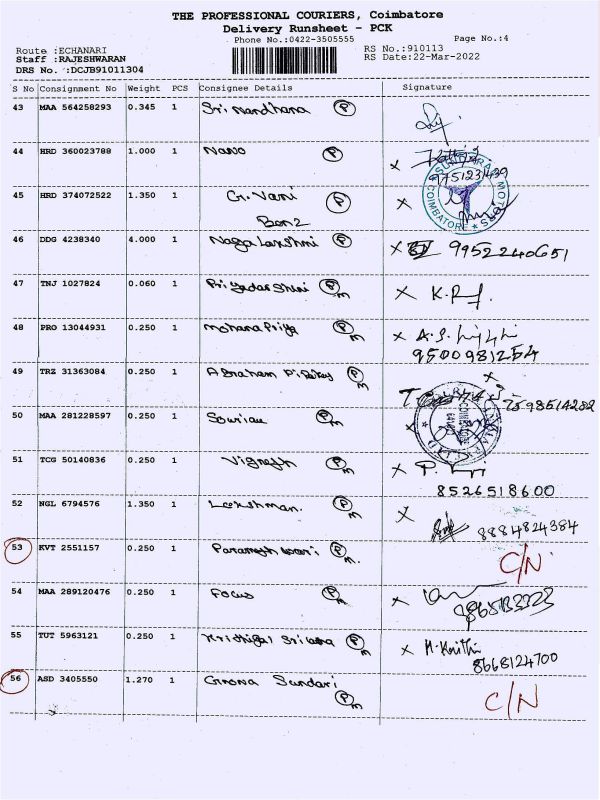 THE PROFESSIONAL COURIERS, Coimbatore
Delivery Runsheet - PCK
Phone No.:0422-3505555 Page No.:4
Route :ECHANARI RS No.:910113
Staff :RAJESHWARAN RS Date:22-Mar-2022
DRS No. :DCJB91011304
S No Consignment No Weight PCS Consignee Details Signature
43 MAA 564258293 0.345 1 Sri Nandhana P
44 HRD 360023788 1.000 1 Nano P
45 HRD 374072522 1.350 1 G. Vani P
46 DDG 4238340 4.000 1 Naga Lakshmi P 9952240651
47 TNJ 1027824 0.060 1 Priyadarshini P m
48 PRO 13044931 0.250 1 Mohana Priya P m
9500981254
49 TRZ 31363084 0.250 1 Abraham P m
7598514282
50 MAA 281228597 0.250 1 P m
51 TCG 50140836 0.250 1 Vignesh P m
8526518600
52 NGL 6794576 1.350 1 Lakshman. P m
8884824384
53 KVT 2551157 0.250 1 Parameshwari P m. C/N
54 MAA 289120476 0.250 1 Focus P m
55 TUT 5963121 0.250 1 P m
8668124700
56 ASD 3405550 1.270 1 Sundari P m C/N